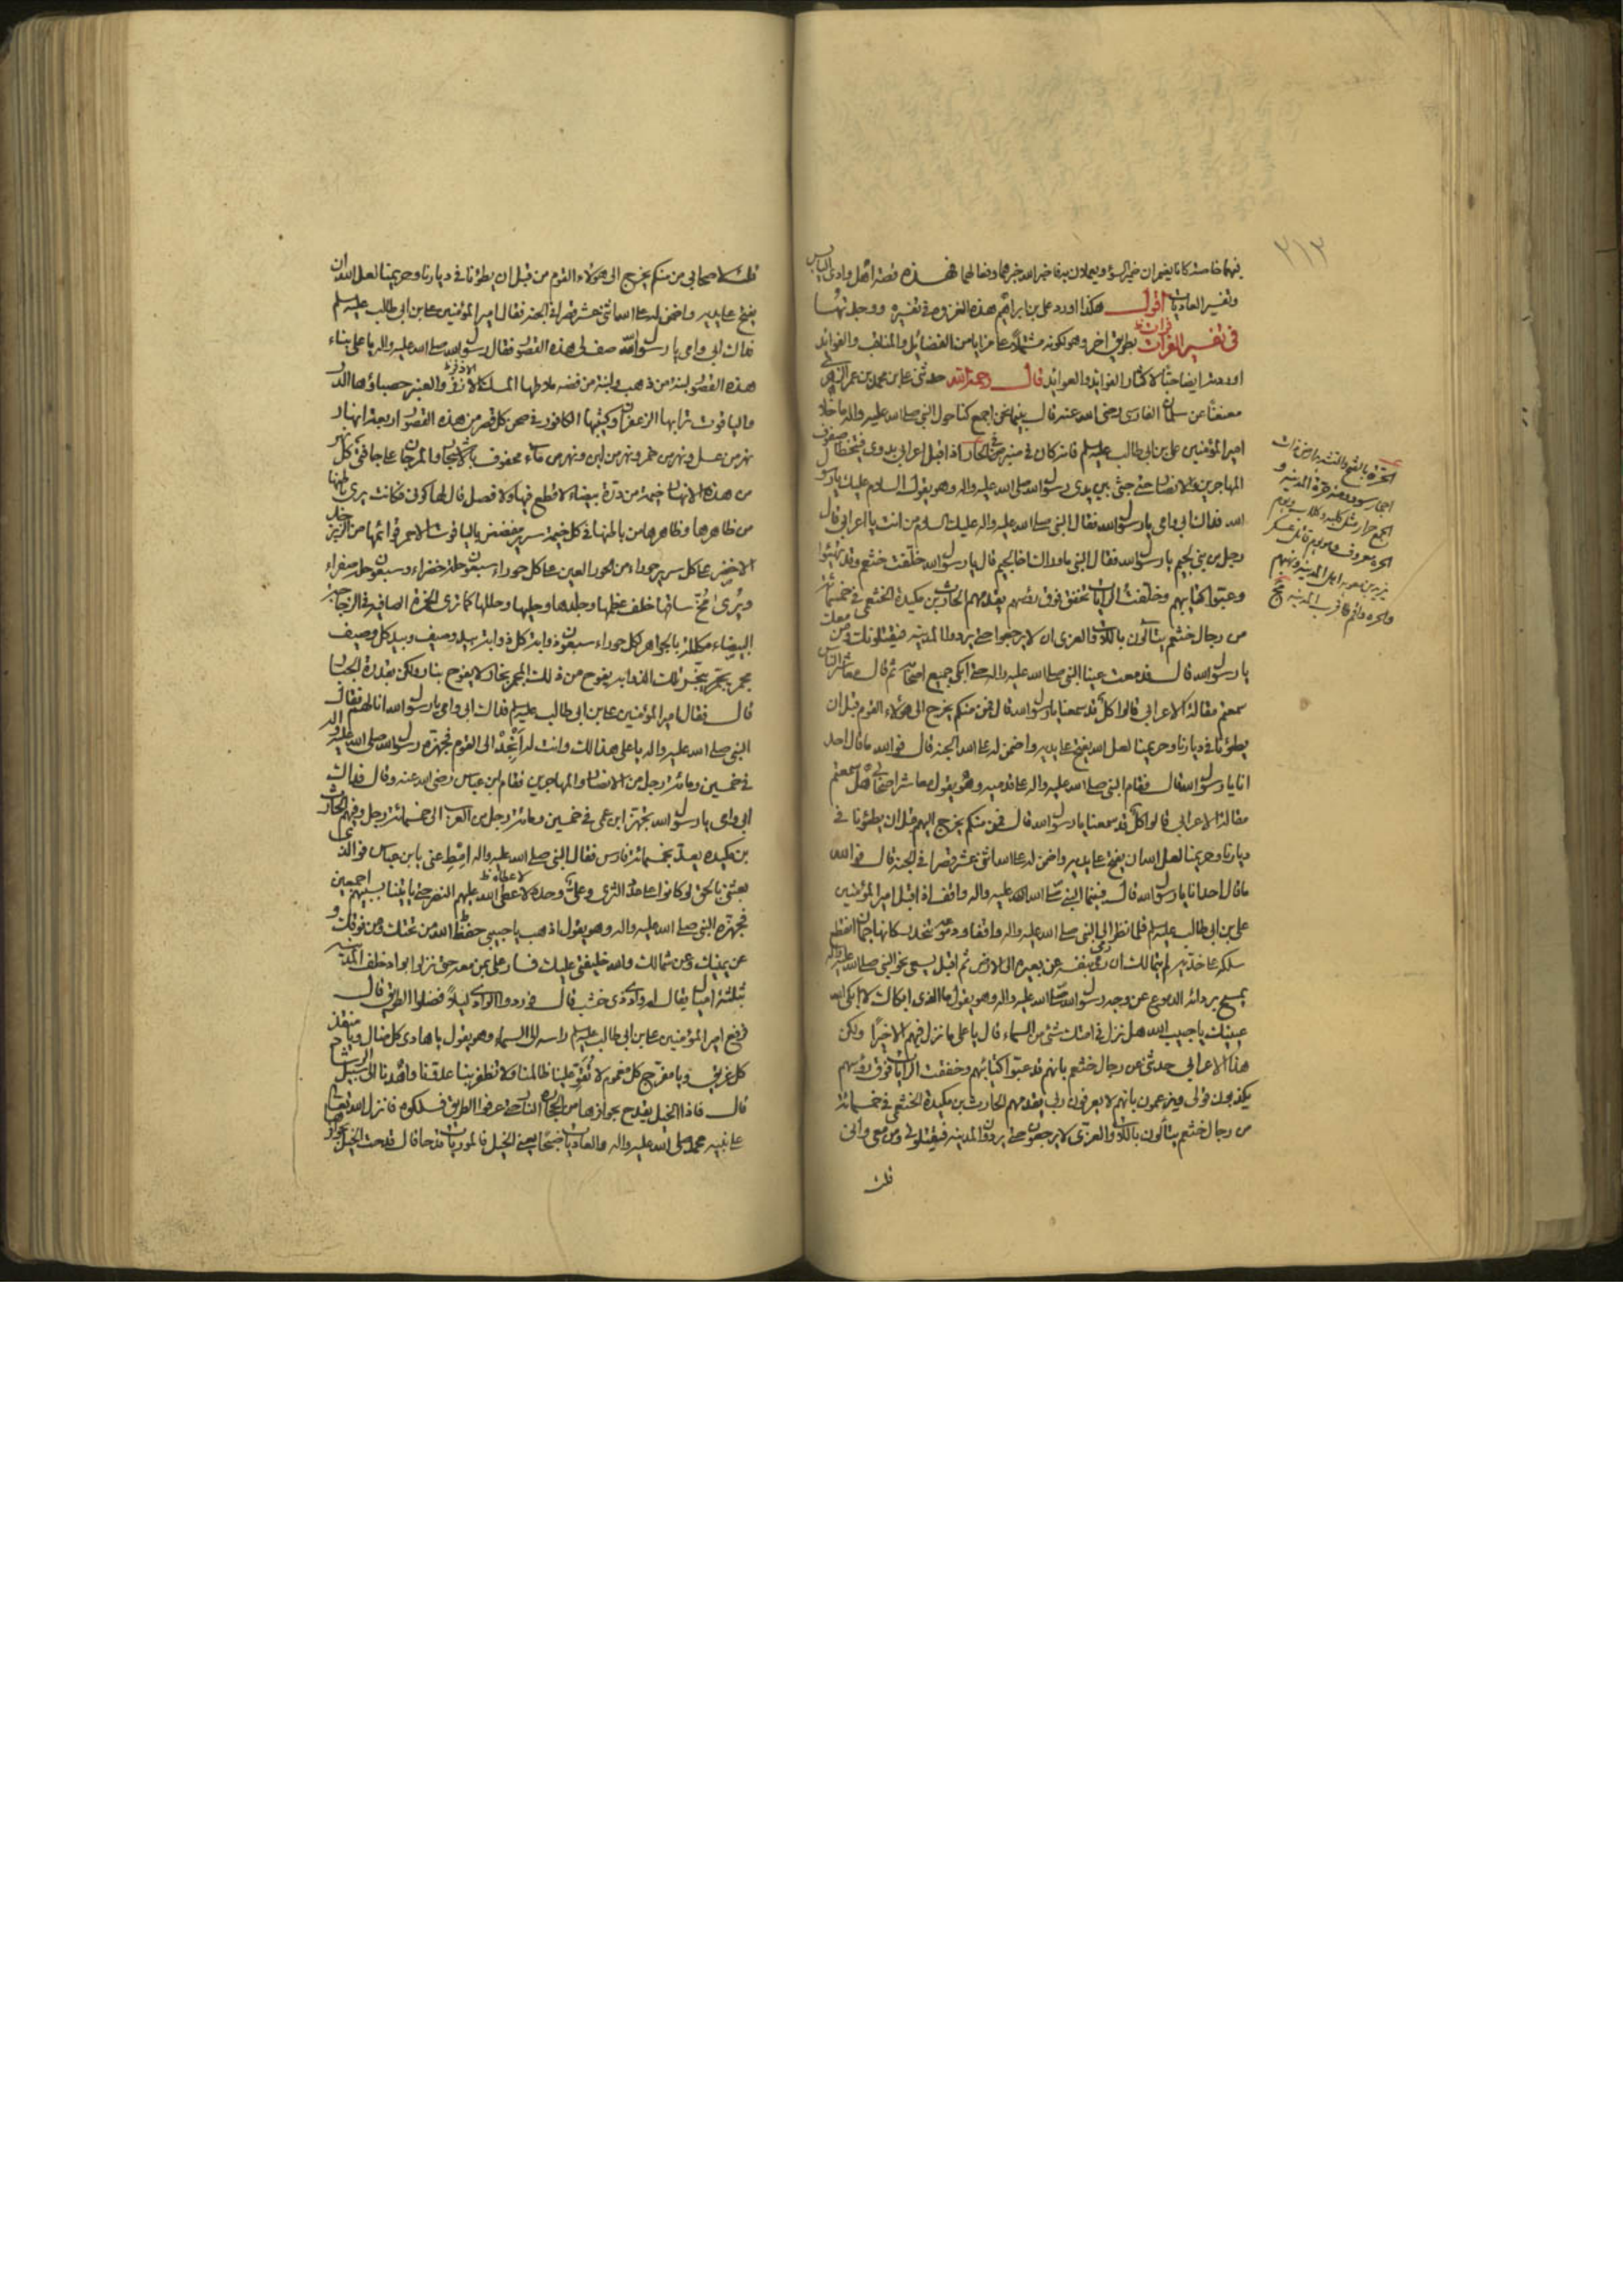 فيهما خاصة كانا يضمران ضمير السوء ويعملان به فاخبر الله خبرهما وفعالهما فهذه قصة اهل وادي اليابس
وتفسير العاديات اقول هكذا اورد علي بن ابراهيم هذه الغزوة في تفسيره ووجدتها
في تفسير الفرات بطريق اخر وهو لكونه مشتملا على مزايا من الفضائل والمناقب والفوائد
اوردته ايضا حبا لاكثار الفوائد والعوائد قال رحمه الله حدثني علي بن محمد بن عمر الزهري
معنعنا عن سلمان الفارسي رضي الله عنه قال بينما نحن اجمع كنا حول النبي صلى الله عليه واله ما خلا
امير المؤمنين علي بن ابي طالب عليه السلم فانه كان في منبر في الحار اذ اقبل اعرابي بدوي فتخطا صفوف
المهاجرين والانصار حتى جثى بين يدي رسول الله صلى الله عليه واله وهو يقول السلام عليك يا رسول
الله فداك ابي وامي يا رسول الله فقال النبي صلى الله عليه واله عليك السلام من انت يا اعرابي قال
رجل من بني لجيم يا رسول الله فقال النبي ما وراك اخا لجيم قال يا رسول الله خلفت خثعم وقد تهيئوا
وعبئوا كتايبهم وخلفت الرايات تخفق فوق رؤسهم يقدمهم الحارث بن مكيدة الخثعمي في خمسمائة
من رجال خثعم يتألون باللات والعزى ان لا يرجعوا حتى يردوا المدينة فيقتلونك ومن معك
يا رسول الله قال فدمعت عينا النبي صلى الله عليه واله حتى ابكى جميع اصحابه ثم قال معاشر الناس
سمعتم مقالة الاعرابي قالوا كل قد سمعنا يا رسول الله قال فمن منكم يخرج الى هؤلاء القوم قبل ان
يطؤنا في ديارنا وحريمنا لعل الله يفتح على يديه واضمن له على الله الجنة قال فوالله ما قال احد
انا يا رسول الله قال فقام النبي صلى الله عليه واله على قدميه وهو يقول معاشر اصحابي هل سمعتم
مقالة الاعرابي قالوا كل قد سمعنا يا رسول الله قال فمن منكم يخرج اليهم قبل ان يطؤنا في
ديارنا وحريمنا لعل الله ان يفتح على يديه واضمن له على الله اثنى عشر قصرا في الجنة قال فوالله
ما قال احد انا يا رسول الله قال فبينما النبي صلى الله عليه واله واقف اذ اقبل امير المؤمنين
علي بن ابي طالب عليه السلم فلما نظر الى النبي صلى الله عليه واله واقفا ودموعه تنحدر كانها جمان انقطع
سلكه على خديه لم يتمالك ان رمى بنفسه عن بعيره الى الارض ثم اقبل يسعى نحو النبي صلى الله عليه واله
يمسح بردائه الدموع عن وجه رسول الله صلى الله عليه واله وهو يقول ما الذي ابكاك لا ابكى الله
عينيك يا حبيب الله هل نزل في امتك شئ من السماء قال يا علي ما نزل فيهم الا خيرا ولكن
هذا الاعرابي حدثني عن رجال خثعم بانهم قد عبئوا كتائبهم وخفقت الرايات فوق رؤسهم
يكذبون قولي ويزعمون بانهم لا يعرفون ربي يقدمهم الحارث بن مكيدة الخثعمي في خمسمائة
من رجال خثعم يتألون باللات والعزى لا يرجعون حتى يردوا المدينة فيقتلوني ومن معي واني
قلت
٢١٣
الحرة بالفتح والتشديد ارض ذات
احجار سود ومنه حرة المدينة و
الجمع حرار مثل كلبة وكلاب ويوم
الحرة معروف وهو يوم قاتل عسكر
يزيد بن معوية اهل المدينة ونهبهم
وحرة واقم بقرب المدينة
قلت لاصحابي من منكم يخرج الى هؤلاء القوم من قبل ان يطؤنا في ديارنا وحريمنا لعل الله ان
يفتح على يديه واضمن له على الله اثنى عشر قصرا في الجنة فقال امير المؤمنين علي بن ابي طالب عليه السلم
فداك ابي وامي يا رسول الله صف لي هذه القصور فقال رسول الله صلى الله عليه واله يا علي بناء
هذه القصور لبنة من ذهب ولبنة من فضة ملاطها المسك الاذفر والعنبر حصباؤها الدر
والياقوت ترابها الزعفران وكثبها الكافور في صحن كل قصر من هذه القصور اربعة انهار
نهر من عسل ونهر من خمر ونهر من لبن ونهر من ماء محفوف بالاشجار والمرجان على حافتي كل نهر
من هذه الانهار خيمة من درة بيضاء لا قطع فيها ولا فصل قال لها كوني فكانت يرى باطنها
من ظاهرها وظاهرها من باطنها في كل خيمة سرير مفضض بالياقوت الاحمر قوائمها من الزبرجد
الاخضر على كل سرير حوراء من الحور العين على كل حوراء سبعون حلة خضراء وسبعون حلة صفراء
ويرى مخ ساقها خلف عظمها وجلدها وحليها وحللها كما ترى الخمرة الصافية في الزجاجة
البيضاء مكللة بالجواهر لكل حوراء سبعون ذوابة كل ذوابة بيد وصيف وبيد كل وصيف
مجمر يجمر يبخر تلك الذوابة يفوح من ذلك المجمر بخار لا يفوح بنار ولكن بقدرة الجبار
قال فقال امير المؤمنين علي بن ابي طالب عليه السلم فداك ابي وامي يا رسول الله انا لهم فقال
النبي صلى الله عليه واله يا علي هذا لك وانت له انجد الى القوم فجهزه رسول الله صلى الله عليه واله
في خمسين ومائة رجل من الانصار والمهاجرين فقام ابن عباس رضي الله عنه وقال فداك
ابي وامي يا رسول الله تجهز ابن عمي في خمسين ومائة رجل من العرب الى خمسمائة رجل وفيهم الحارث
بن مكيدة يعد بخمسمائة فارس فقال النبي صلى الله عليه واله امط عني يا بن عباس فوالذي
بعثني بالحق لو كانوا على عدد الثرى وعلي وحده لاعطى الله عليهم النصر حتى ياتينا بسبيهم اجمعين
فجهزه النبي صلى الله عليه واله وهو يقول اذهب يا حبيبي حفظ الله من تحتك ومن فوقك و
عن يمينك وعن شمالك والله خليفتي عليك فسار علي بمن معه حتى نزلوا بواد خلف المدينة
بثلثة اميال يقال له وادي ذي خشب قال فوردوا الوادي ليلا فضلوا الطريق قال
فرفع امير المؤمنين علي بن ابي طالب عليه السلم راسه الى السماء وهو يقول يا هادي كل ضال ويا منقذ
كل غريق ويا مفرج كل مغموم لا تقو علينا ظالما ولا تظفر بنا عدونا واهدنا الى سبيل الرشاد
قال فاذا الخيل يقدح بحوافرها من الحجارة النار حتى عرفوا الطريق فسلكوه فانزل الله تعالى
على نبيه محمد صلى الله عليه واله والعاديات ضبحا يعني الخيل فالموريات قدحا قال قدحت الخيل بحوافرها